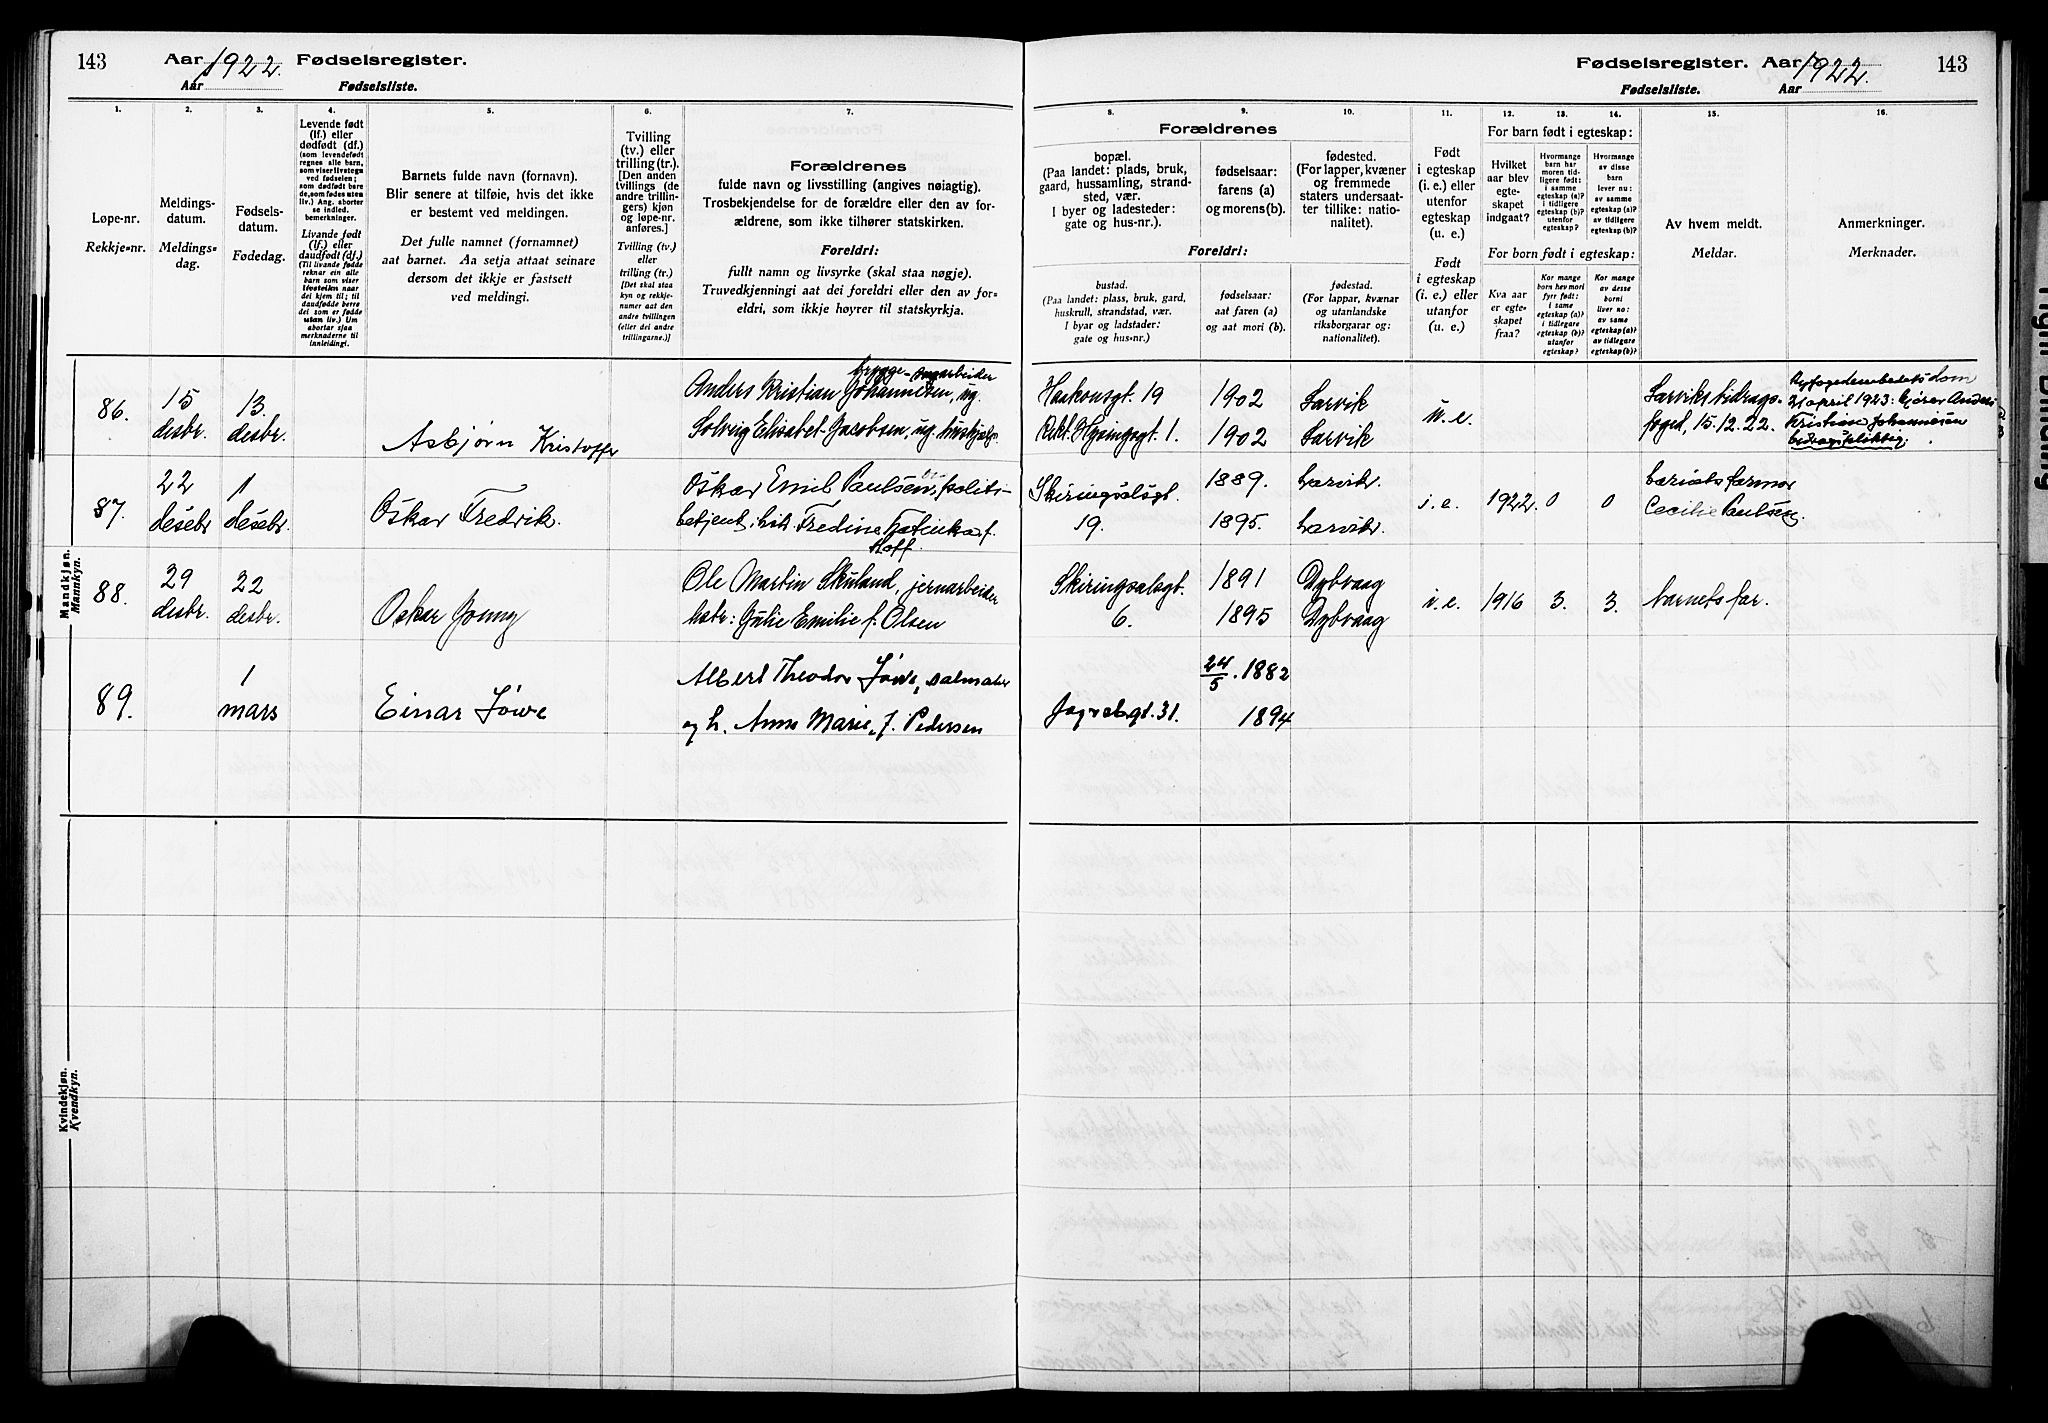 143 Aar 1922. Fødselsregister.
Aar Fødselsliste.
Fødselsregister. Aar 1922. 143
Fødselsliste. Aar
1. 2. 3. 4. 5. 6. 7.
Løpe-nr.
Rekkje-nr.
Meldings-
datum.
Meldings-
dag.
Fødsels-
datum.
Fødedag.
Levende født
(lf.) eller
dødfødt (df.)
(som levendefødt
regnes alle barn,
som viser livstegn
ved fødselen;
som dødfødt bare
de, som fødes uten
liv.) Ang. aborter
se indled.
bemerkninger.
Livande født
(lf.) eller
daudfødt (df.)
(Til livande fødde
reknar ein alle
barn som viser
livsteikn naar
dei kjem til; til
daudfødde berre
dei som er fødde
utan liv.) Um
abortar sjaa
merknaderne til
innleidingi.
Barnets fulde navn (fornavn).
Blir senere at tilføie, hvis det ikke
er bestemt ved meldingen.
Det fulle namnet (fornamnet)
aat barnet. Aa setja attaat seinare
dersom det ikkje er fastsett
ved meldingi.
Tvilling
(tv.) eller
trilling (tr.).
[Den anden
tvillings (de
andre trillin-
gers) kjøn
og løpe-nr.
anføres.]
Tvilling (tv.)
eller
trilling (tr.)
[Det skal staa
kyn og rekkje-
numer aat den
andre tvillingen
(eller dei andre
trillingarne.)]
Forældrenes
fulde navn og livsstilling (angives nøiagtig).
Trosbekjendelse for de forældre eller den av for-
ældrene, som ikke tilhører statskirken.
Foreldri:
fullt namn og livsyrke (skal staa nøgje).
Truvedkjenningi aat dei foreldri eller den av for-
eldri, som ikkje høyrer til statskyrkja.
8. 9. 10. 11. 12. 13. 14. 15. 16.
Forældrenes
bopæl.
(Paa landet: plads, bruk,
gaard, hussamling, strand-
sted, vær.
I byer og ladesteder:
gate og hus-nr.).
fødselsaar:
farens (a)
og morens (b).
fødested.
(For lapper, kvæner
og fremmede
staters undersaat-
ter tillike: natio-
nalitet).
Foreldri:
bustad.
(Paa landet: plass, bruk, gard,
huskrull, strandstad, vær.
I byar og ladstader:
gate og hus-nr.)
fødselsaar:
aat faren (a)
og aat mori (b).
fødestad.
(For lappar, kvænar
og utanlandske
riksborgarar og:
nationalitet).
Født
i egteskap
(i. e.) eller
utenfor
egteskap
(u. e.)
Født
i egteskap
(i. e.) eller
utanfor
(u. e.)
For barn født i egteskap:
Hvilket
aar blev
egte-
skapet
indgaat?
Hvormange
barn har
moren tid-
ligere født:
i samme
egteskap (a)?
i tidligere
egteskap (b)?
utenfor
egteskap?
Hvormange
av disse
barn
lever nu:
av samme
egteskap (a)?
av tidligere
egteskap (b)?
For born født i egteskap:
Kva aar
er egte-
skapet
fraa?
Kor mange
born hev mori
fyrr født:
i same
egteskap (a)?
i tidlegare
egteskap (b)?
utanfor
egteskap?
Kor mange
av desse
borni
liver no:
av same
egteskap (a)?
av tidlegare
egteskap (b)?
Av hvem meldt.
Meldar.
Anmerkninger.
Merknader.
Mandkjøn.
Mannkyn.
86. 15 desbr. 13. desbr. Asbjørn Kristoffer
brygge-
Anders Kristian Johannesen, ug.
Solveig Elisabet Jacobsen, ug. hushjelp.
Haakonsgt. 19 1902 Larvik u.e.
Rekt. Hysingsgt. 1. 1902 Larvik
Larviks bidrags-
foged, 15.12.22.
21 april 1923: kjører Anders
Kristian Johannesen
bidragspliktig.
87. 22 desebr 1 desebr. Oskar Fredrik.
Oskar Emil Paulsen, politi-
betjent; hstr. Fredine Katinka f.
Hoff.
Skiringsalsgt. 1889. Larvik.
19. 1895. Larvik.
i.e. 1922. 0 0
barnets farmor
Cecilie Paulsen.
88. 29 desbr. 22 desbr. Oskar Jonny
Ole Martin Skuland, jernarbeider
hstr: Julie Emilie f. Olsen
Skiringsalsgt. 1891 Dybvaag
6. 1895 Dybvaag
i.e. 1916 3. 3. barnets far.
89. 1 mars Einar Jówe
Albert Theodor Jówe, salmaker
og h. Anna Marie, f. Pedersen
24/5. 1882
31. 1894
Kvindekjøn.
Kvendkyn.